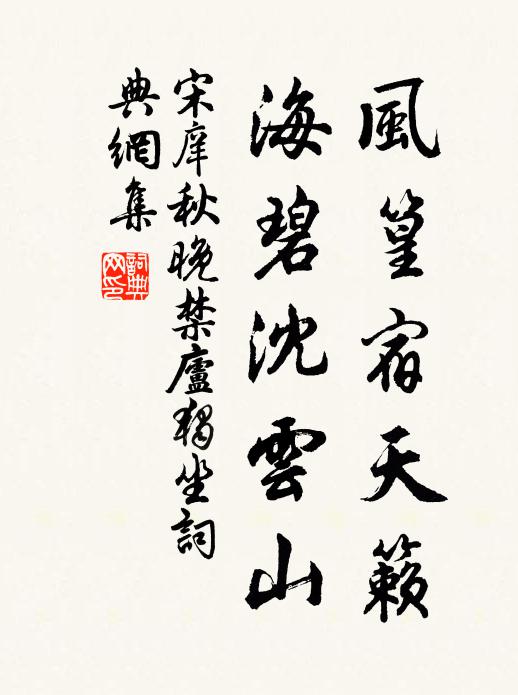 風篁宿天籟
海碧沈雲山
宋庠秋晚禁廬獨坐詞
典網集
詞典
网印